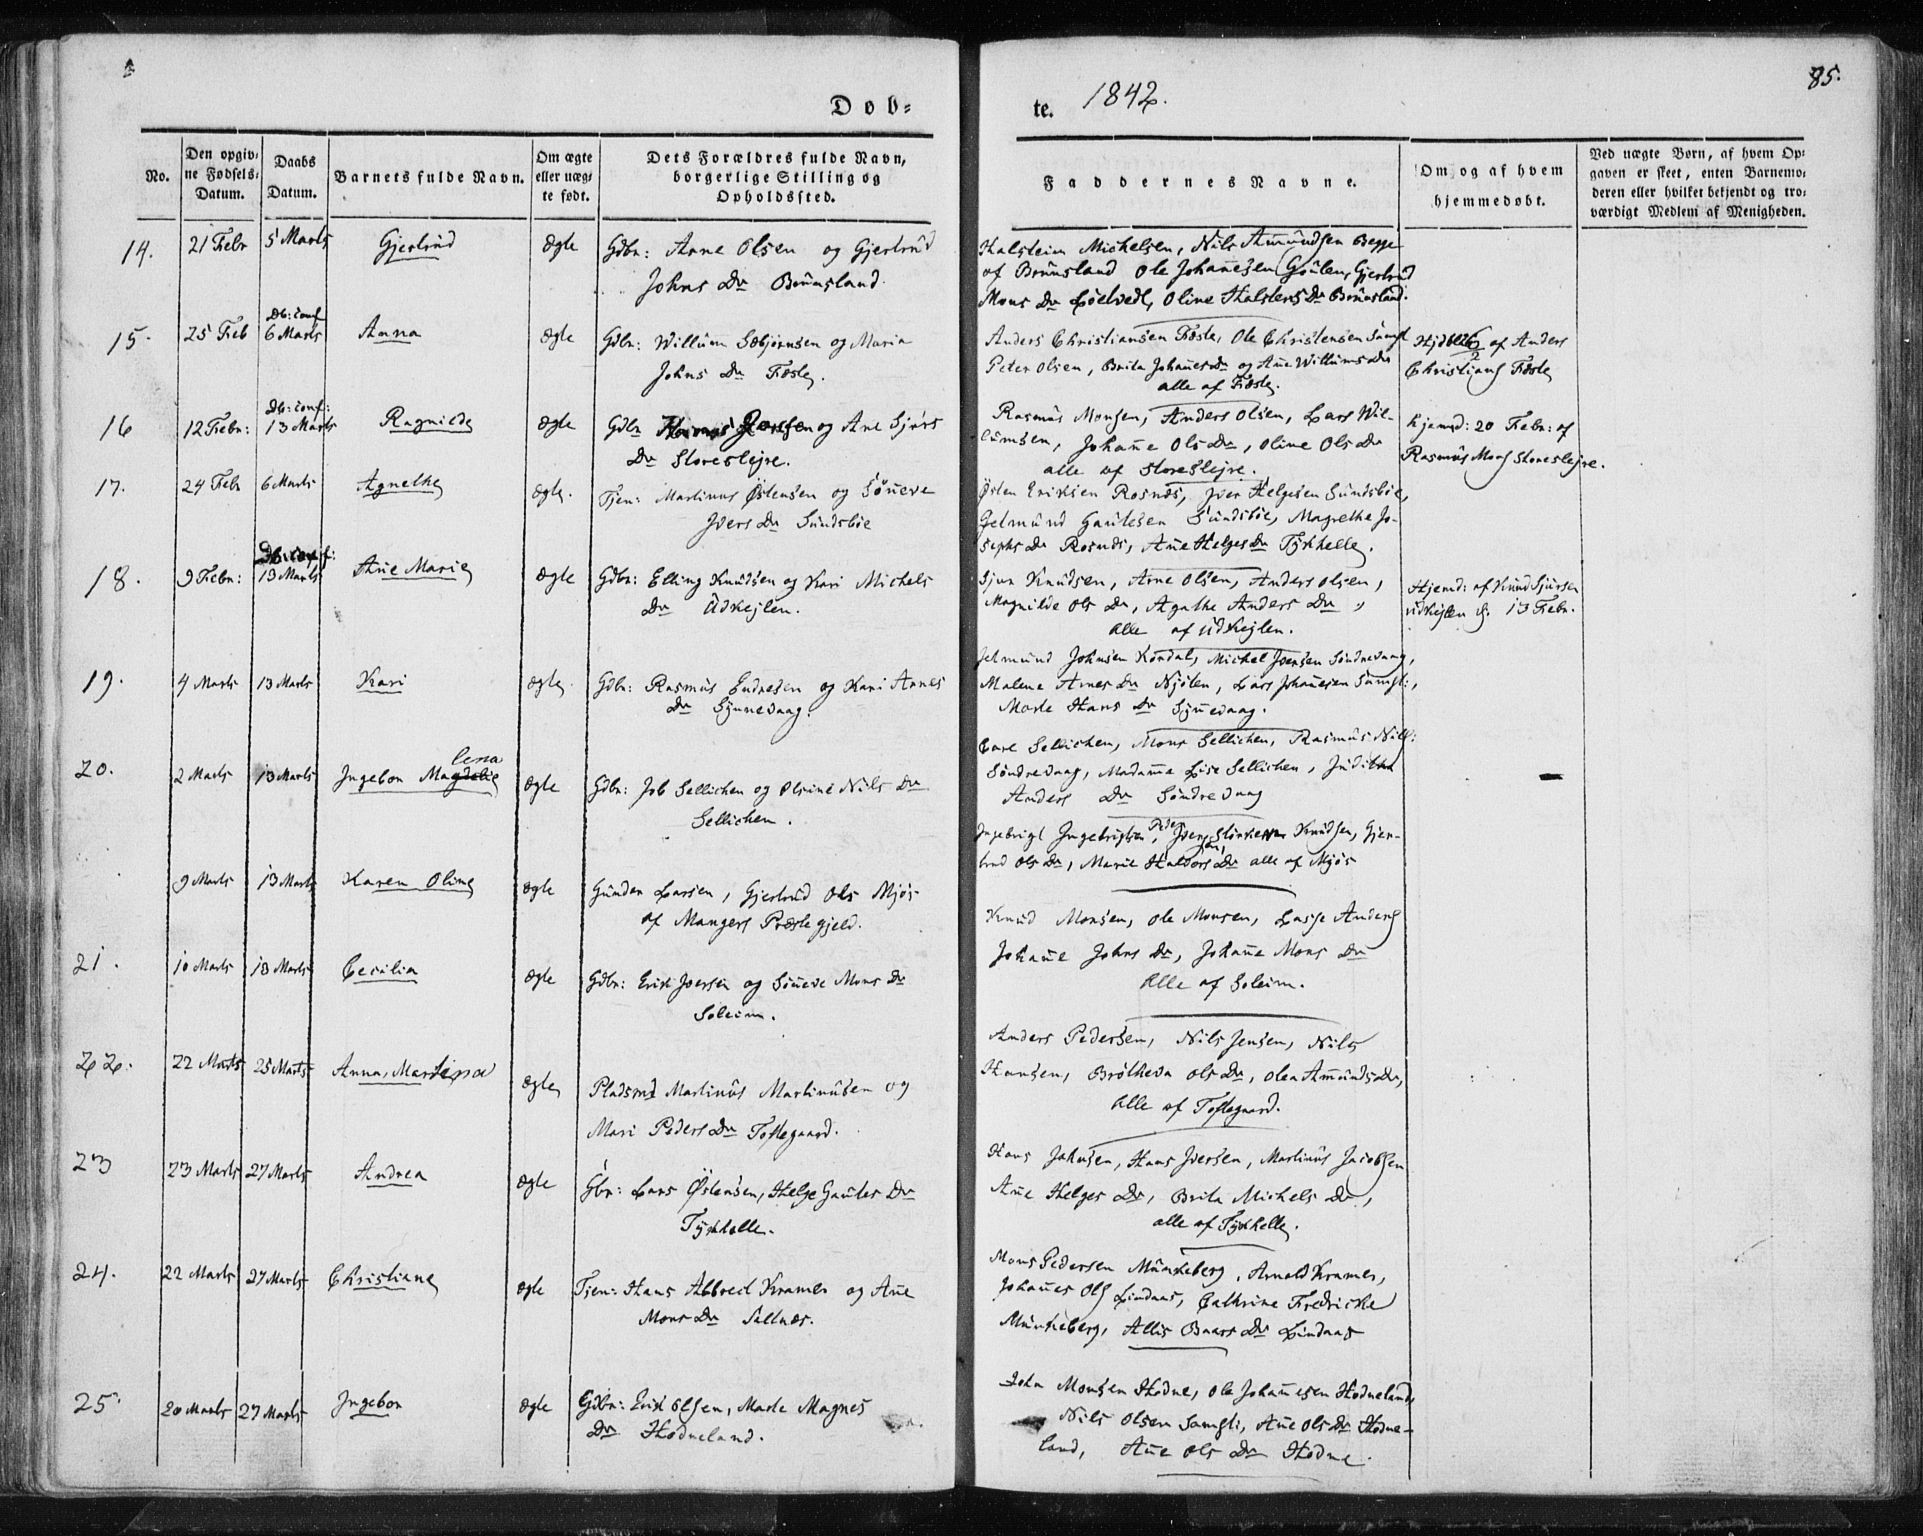 Døb-
te. 1842.
85.
No.
Den opgiv-
ne Fødsels-
Datum.
Daabs
Datum.
Barnets fulde Navn.
Om ægte
eller uæg-
te født.
Dets Forældres fulde Navn,
borgerlige Stilling og
Opholdssted.
Faddernes Navne.
Om og af hvem
hjemmedøbt.
Ved uægte Børn, af hvem Op-
gaven er skeet, enten Barnemo-
deren eller hvilket bekjendt og tro-
værdigt Medlem af Menigheden.
14. 21 Febr 5 Marts Gjertrud Ægte Gdbr: Arne Olsen og Gjertrud
Johns Dr Brunsland.
Halstein Michelsen, Nils Amundsen Begge
af Brunsland Ole Johanesen Goulen, Gjertrud
Mons Dr, Oline Halstens Dr Brunsland.
Db: conf
15. 25 Feb 6 Marts Anna ægte Gdbr: Willum Sebjørnsen og Maria
Johns Dr Fæste.
Anders Christiansen Fæste, Ole Christensen Samst
Peter Olsen, Brita Johanes Dr og Ane Willums Dr
alle af Fæste.
af Anders
Christians Fæste
Db: conf:
16 12 Febr: 13 Marts Ragnilde ægte Gdbr og Ane Sjurs
Dr Storeslejre.
Rasmus Monsen, Anders Olsen, Lars Wil-
lumsen, Johane Ols Dr, Oline Ols Dr
alle af Storeslejre.
hjemd: 20 Febr: af
Rasmus Mons Storeslejre.
17. 24 Febr 6 Marts Agnethe ægte. Tjen: Martinus Østensen og Søneve
Ivers Dr Sundsbøe
Østen Eriksen Rosnæs, Iver Helgesen Sundsbøe,
Gelmund Gautesen Sundsbøe, Magrethe Jo-
sephs Dr Rosnæs, Ane Helges Dr Fyxhelle.
Db: conf:
18. 9 Febr: 13 Marts Ane Marie ægte Gdbr: Elling Knudsen og Kari Michels
Dr Udkejlen.
Sjur Knudsen, Arne Olsen, Anders Olsen,
Magnilde Ols Dr, Agathe Anders Dr,
alle af Udkejlen.
Hjemd: af Knud Sjursen
Udkejlen d. 13 Febr.
19. 4 Marts 13 Marts Kari ægte. Gdbr: Rasmus Endresen og Kari Arnes
Dr Synnevaag.
Jelmund Johnsen Kondal, Michel Iversen Søndrevaag,
Malene Arnes Dr Njøten, Lars Johanesen Samst:,
Marte Hans Dr Synevaag.
lena
20. 2 Marts 13 Marts Ingebor Magdelie ægte Gdbr: Job Sellichen og Olsine Nils Dr
Sellichen.
Carl Sellichen, Mons Sellichen, Rasmus Nils:
Søndrevaag, Madame Lise Sellichen, Judithe
Anders Dr Søndrevaag
9 Marts 13 Marts Karen Oline ægte Gunder Larsen, Gjertrud Ols Mjøs
af Mangers Præstegjeld.
Ingebrigt Ingebrigtsen, Peder Knudsen, Gjer-
trud Ols Dr, Marie Halvors Dr alle af Mjøs
21. 10 Marts 13 Marts Cecilia ægte Gdbr: Erik Iversen og Søneve Mons Dr
Soleim.
Knud Monsen, Ole Monsen, Lasse Anders
Johane Johns Dr, Johane Mons Dr
alle af Soleim.
22. 22 Marts 25 Marts Anna, Martina ægte Pladsmd Martinus Martinusen og
Mari Peders Dr Toftegaard.
Anders Pedersen, Nils Jensen, Nils
Hansen, Brøtheva Ols Dr, Olea Amunds Dr,
alle af Toftegaard.
23 23 Marts 27 Marts Andrea ægte Gbr: Lars Østensen, Helge Gautes Dr
Fyxhelle.
Hans Johnsen, Hans Iversen, Martinus Jacobsen
Ane Helges Dr, Brita Michels Dr,
alle af Fyxhelle.
24. 22 Marts 27 Marts Christiane ægte Tjen: Hans Abbreit Kramer og Ane
Mons Dr Saltnæs.
Mons Pedersen Munkeberg, Arnold Kramer,
Johanes Ols Lindaas, Cathrine Fredricke
Munkeberg, Allis Baars Dr Lindaas
25. 20 Marts 27 Marts Ingebor ægte Gdbr: Erik Olsen, Marte Magnes
Dr Hodneland.
John Monsen Hodne, Ole Johanesen Hodneland,
Nils Olsen Samsti, Ane Ols Dr Hodne-
land, Ane Ols Dr Hodne.